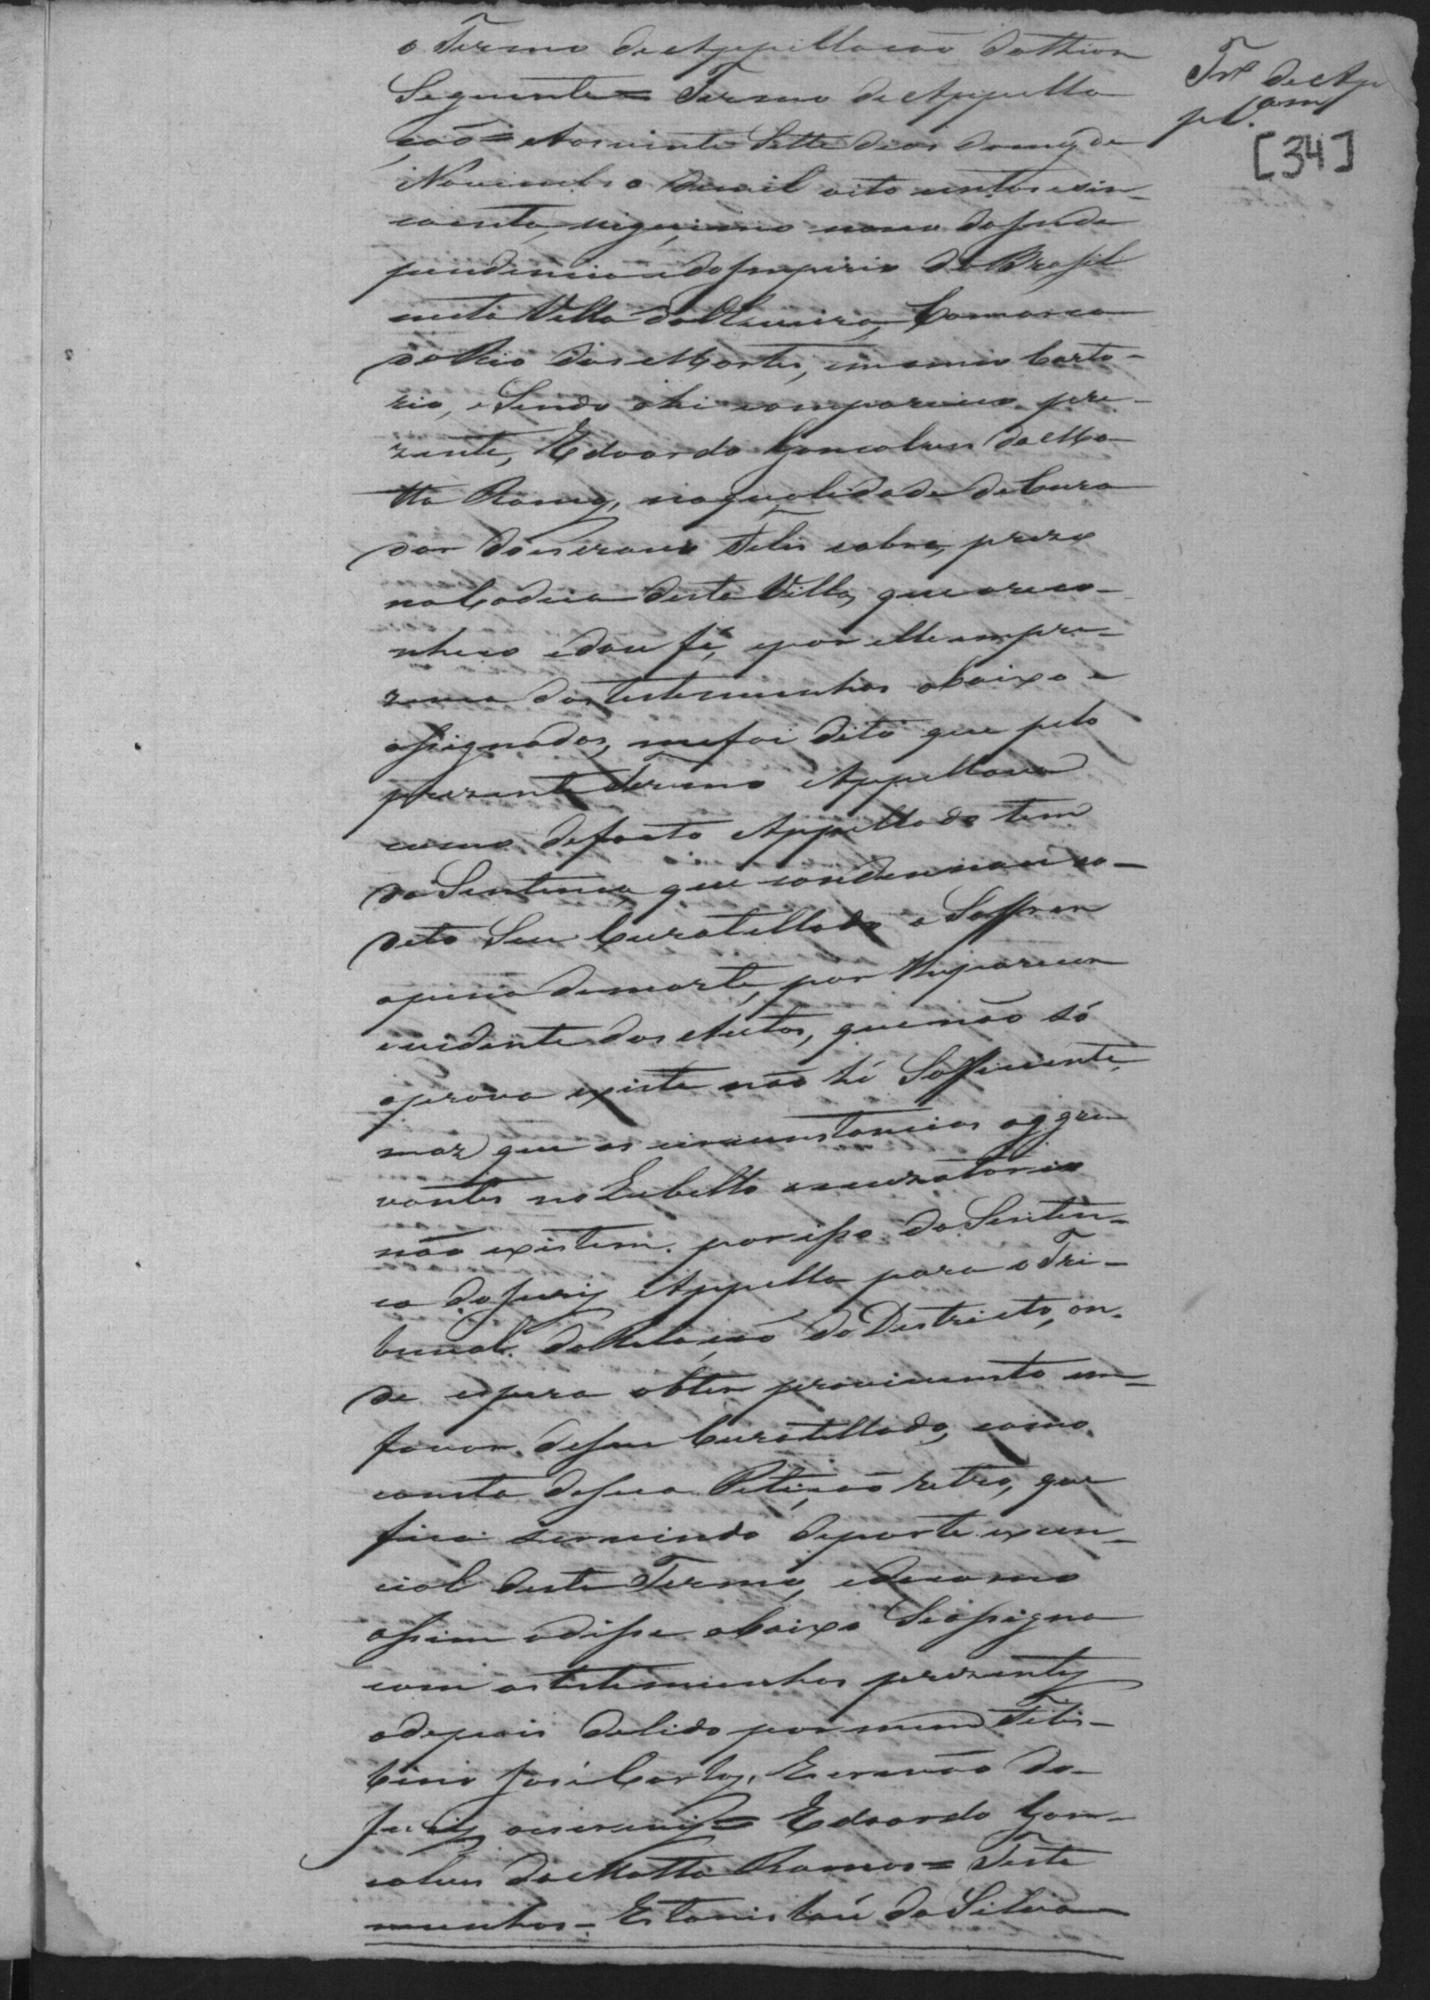 o Termo de Appellação do thior
Seguinte = Termo de Appella
ção = Aos vinte Sette dias do mez de
Novembro de mil oito centos e sin-
coenta, vigesimo nono da Inde
pendencia e do Imperio do Brasil
nesta Villa da Oliveira, Comarca
do Rio das Mortes, em meo Carto-
rio, e Sendo ahi compareceo pre-
zente, Eduardo Gonçalves da Mo
tta Ramos, na qualidade de Cura
dor do escravo Felis cabra, prezo
na Cadeia desta Villa, que o reco-
nheco e dou fé, e por elle em pre-
zença das testemunhas abaixo e
assignadas, me foi dito que pelo
prezente termo Appellava
como de facto Appellado tem
da Sentença que condemnou ao-
dito Seu Curatellado a Soffrer
a pena de morte, por lhe parecer
evidente dos Autos, que não só
a prova existe não hé Sofficiente,
maz que as circunstancias aggra
vantes no Libello accuzatorio
não existem. por isso da Senten-
ça do Jury Appella para o Tri-
bunal da Relação do Districto, on-
de espera obter provimento em-
favor de seu Curatellado, como
consta de sua Petição retro, que
fica servindo de parte exen-
cial deste Termo, e de como
assim o disse abaixo Se assigna
com as testemunhas prezentes
o depois de lido por mim Felis-
bino José Cortes, Escrivão do-
Jury o escrevy = Edoardo Gon-
calves da Motta Ramos = Teste
munhas = Estanisláu da Silva
Trº de Ap
pl.am
[34]